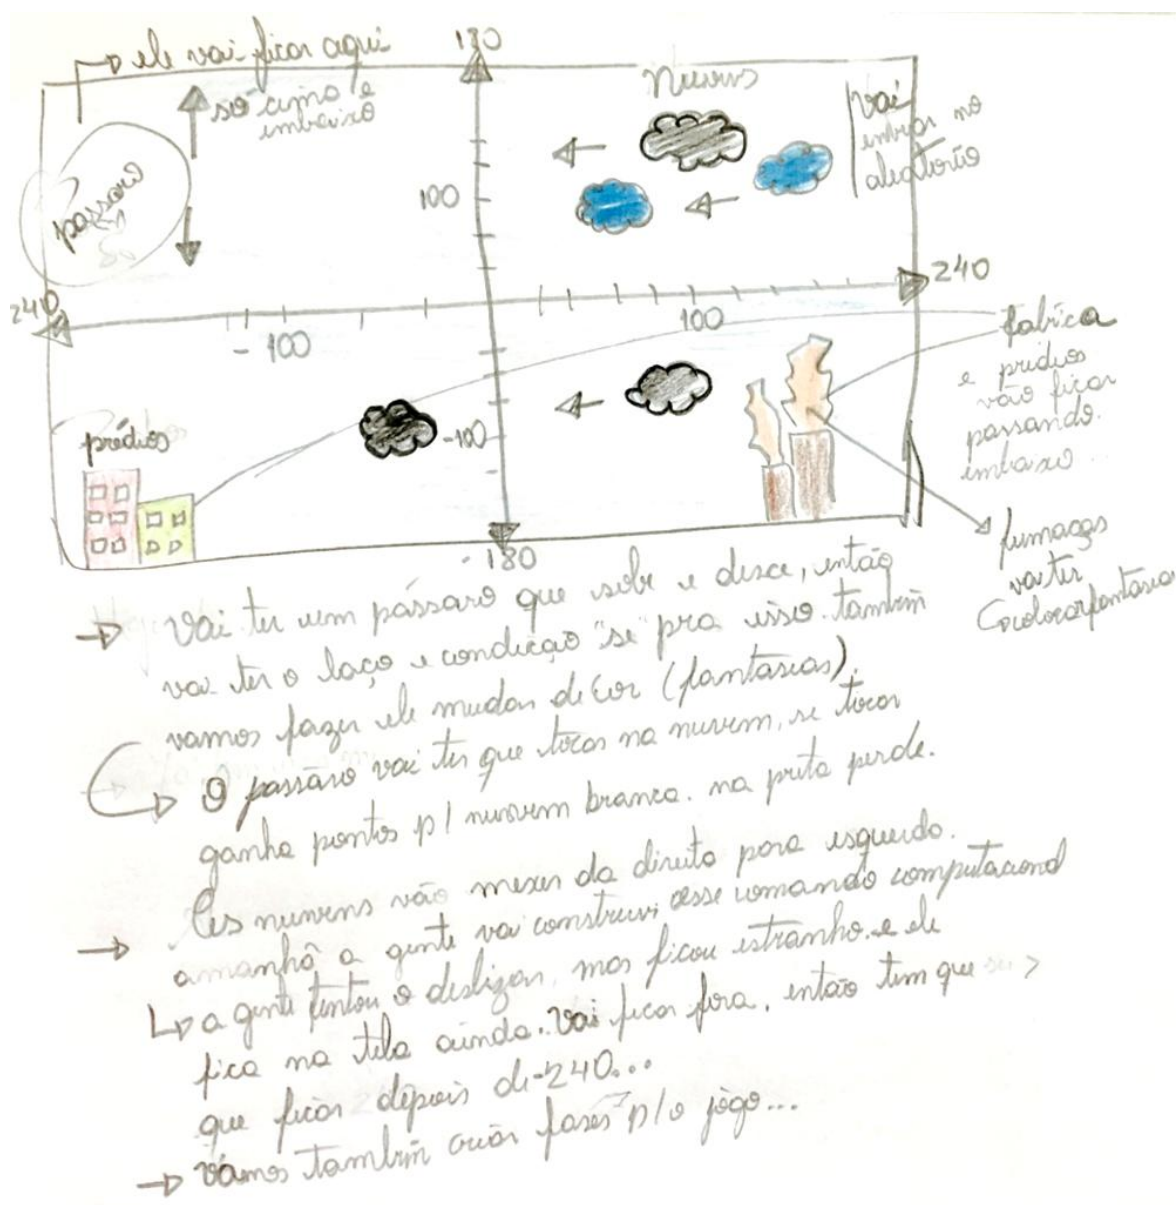 ele vai ficar aqui
180
só cima e
embaixo
Nuvens
vai
entrar no
aleatório
passaro
100
240
240
- 100
100
fabrica
e prédios
vão ficar
passando.
embaixo...
prédios
-100
fumaças
vai ter
colocar fantasia
-180
vai ter um pássaro que sobe e desce, então
vai ter o laço e condição "se" pra isso. também
vamos fazer ele mudar de cor (fantasias).
O passáro vai ter que tocar na nuvem, se tocar
ganha pontos p/ nuvem branca. na preta perde.
As nunvens vão mexer da direita para esquerda.
amanhã a gente vai construir esse comando computacional
a gente tentou o deslizar, mas ficou estranho. e ele
fica na tela ainda. Vai ficar fora, então tem que ser >
que ficar depois de -240...
vamos também criar fases p/ o jogo...